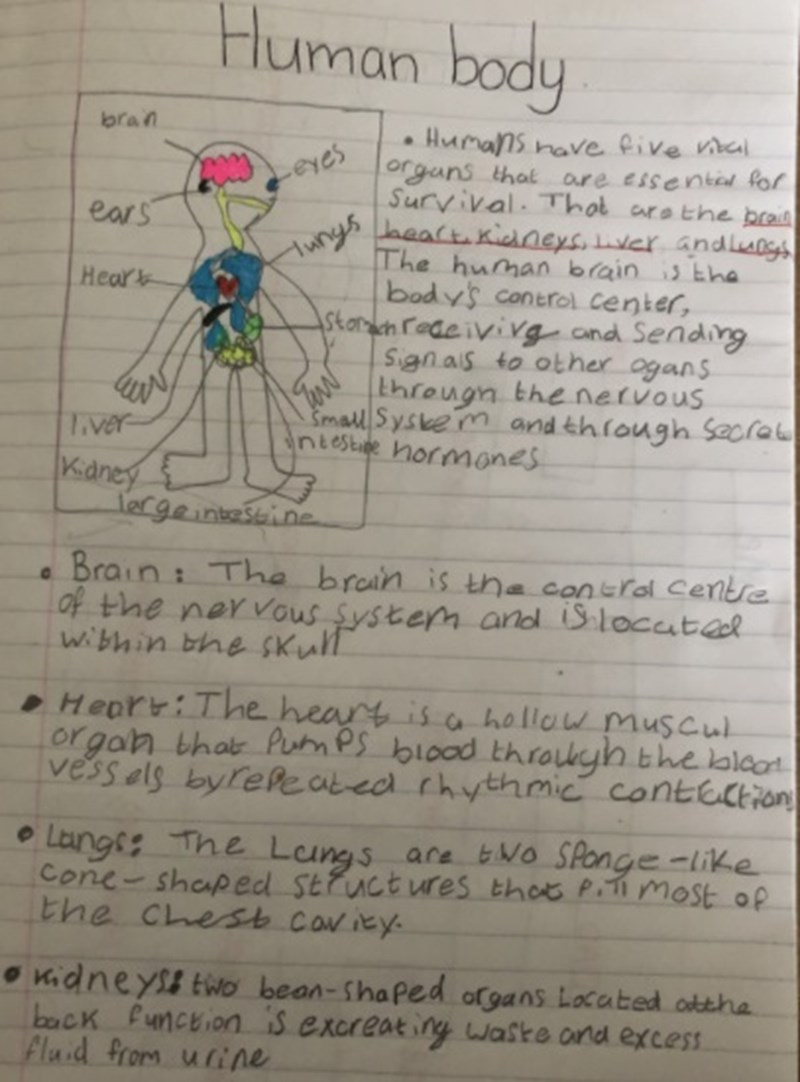 Human body
brain
eyes
ears
lungs
Heart
Stomach
liver
Small
intestine
Kidney
large intestine
• Humans have five vital
organs that are essential for
Survival. That are the brain
heart, Kidneys, liver and lungs
The human brain is the
body's control center,
receiving and Sending
Signals to other ogans
through the nervous
System and through Secret
hormones
• Brain: The brain is the control centre
of the nervous system and is located
within the skull
• Heart: The heart is a hollow muscul
organ that PumPs blood through the blood
vessels by repeated rhythmic
• Lungs: The Lungs are two SPonge-like
cone-shaped structures that most of
the chest cavity.
• Kidneys: two bean-shaped organs Located at the
back function is excreating waste and excess
fluid from urine